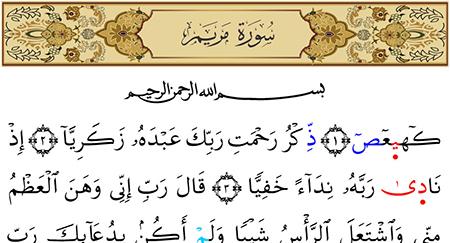 سُورَةُ مَرْيَم
بسم الله الرحمن الرحيم
كٓهيعٓصٓ ﴿١﴾ ذِكْرُ رَحْمَتِ رَبِّكَ عَبْدَهُۥ زَكَرِيَّآ ﴿٢﴾ إِذْ
نَادَىٰ رَبَّهُۥ نِدَآءً خَفِيًّا ﴿٣﴾ قَالَ رَبِّ إِنِّى وَهَنَ ٱلْعَظْمُ
مِنِّى وَٱشْتَعَلَ ٱلرَّأْسُ شَيْبًا وَلَمْ أَكُنۢ بِدُعَآئِكَ رَبِّ